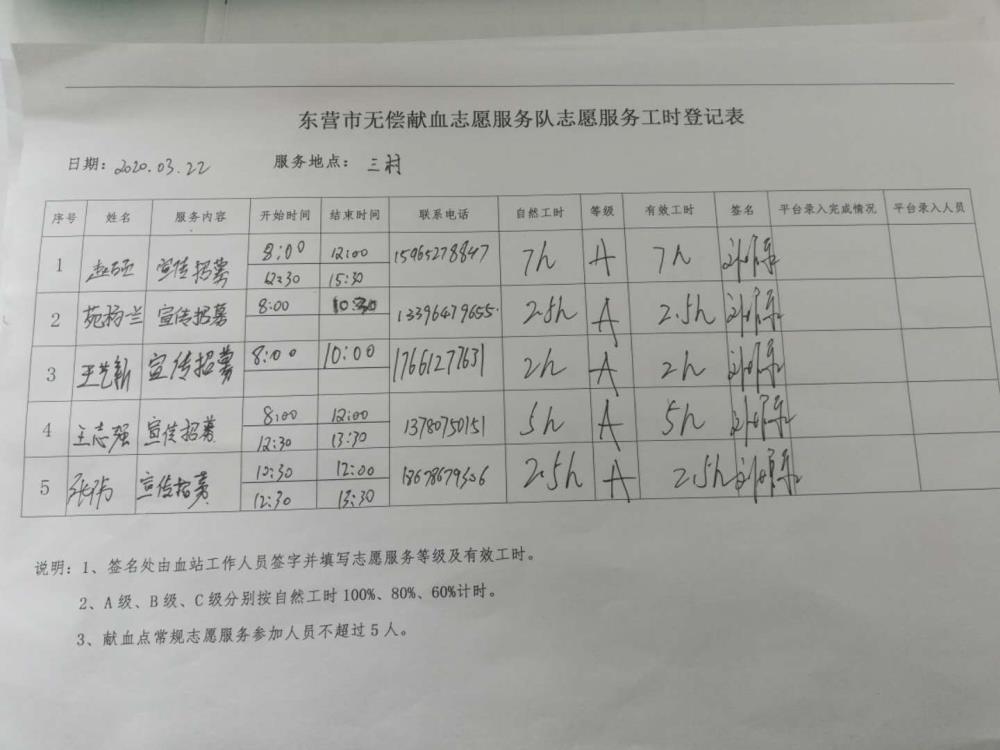 东营市无偿献血志愿服务队志愿服务工时登记表
日期：2020.03.22 服务地点：三村
序号 姓名 服务内容 开始时间 结束时间 联系电话 自然工时 等级 有效工时 签名 平台录入完成情况 平台录入人员
1 宣传招募 8:00 12:00 15965278847 7h A 7h
12:30 15:30
2 苑梅兰 宣传招募 8:00 10:30 13396479655 2.5h A 2.5h
3 王艺新 宣传招募 8:00 10:00 17661277631 2h A 2h
4 王志强 宣传招募 8:00 12:00 13780750151 5h A 5h
12:30 13:30
5 张伟 宣传招募 10:30 12:00 2.5h A 2.5h
12:30 13:30
说明：1、签名处由血站工作人员签字并填写志愿服务等级及有效工时。
2、A级、B级、C级分别按自然工时100%、80%、60%计时。
3、献血点常规志愿服务参加人员不超过5人。